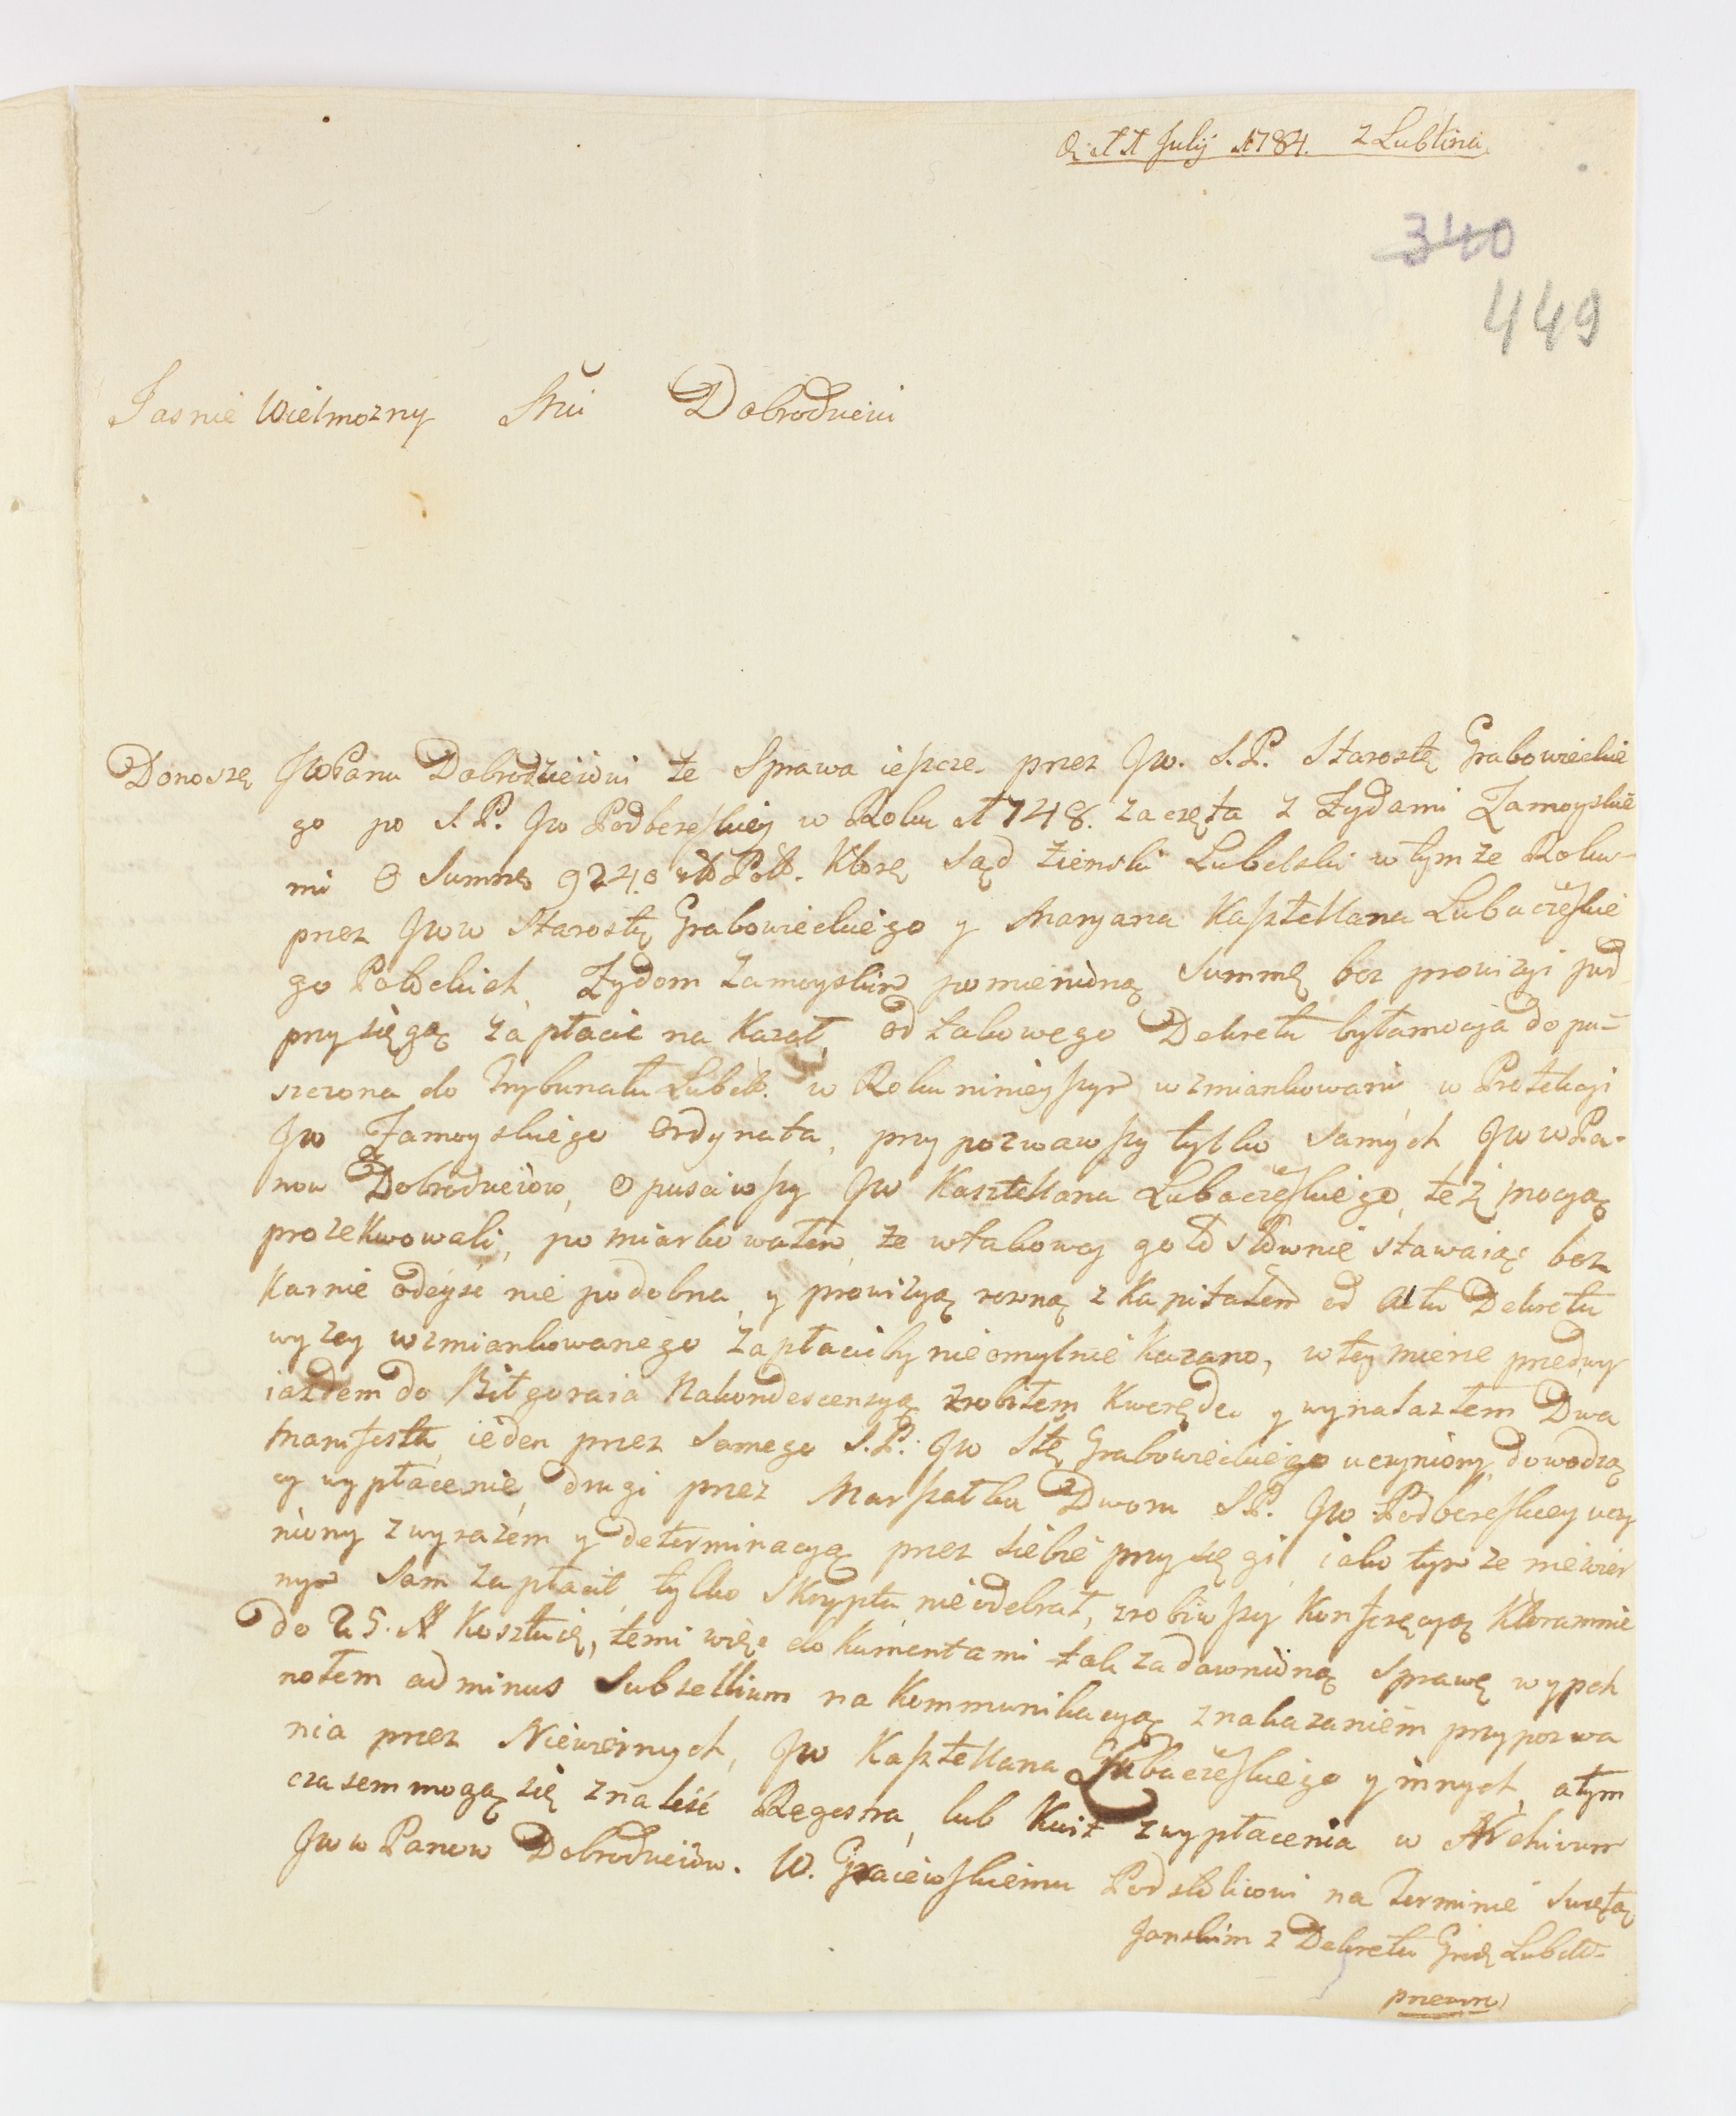 D. 11 July 1784. z Lublina
340
449
Jasnie Wielmozny Mci Dobrodzieiu
Donoszę JWPanu Dobrodzieiowi że Sprawa ieszcze przez JW. S.P. Starostę Grabowieckie
go po S.P. JW Podhereskiey w Roku 1748. zaczęta z Zydami Zamoyskie
mi o Summę 9240 zł Pol. którę Sąd Ziemski Lubelski w tymże Roku
przez JWW Starostę Grabowieckiego y Maryana Kasztellana Lubaczeskie
go Potockich, Zydom Zamoyskim pomienioną Summę bez prowizyi pod
przysięgą zapłacic nakazał, od takowego Dekretu była mocja dopu-
szczona do Trybunału Lubel. w Roku ninieyszym wzmiankowani w Protekcji
JW Zamoyskiego Ordynata, przypozwawszy tylko samych JWWPa-
now Dobrodzieiow, opusciwszy JW Kasztellana Lubaczeskiego, też mocyą
prozekwowali, pomiarkowałem, że w takowey gołosłownie stawaiąc bez
karnie odeyść nie podobna, y prowizyą rowną z Kapitałem od Aktu Dekretu
wyzey wzmiankowanego zapłacicby nieomylnie kazano, w tey mierze przed wy
iazdem do Biłgoraia Nakondescensyą zrobiłem kwerędę y wynalazłem Dwa
Manifesta, ieden przez samego S.P. JW Stę Grabowieckiego uczyniony, dowodzą
cy wypłacenie, drugi przez Marszałka Dworu S.P. JW Podhereskiey uczy
niony z wyrazem y determinacyą przez siebie przysięgi, iako tym że niewier
nym sam zapłacił, tylko skryptu nieodebrał, zrobiwszy Konferęcyą która mnie
do 25. # Kosztuię, temi więc dokumentami tak zadawnioną Sprawę wypch
nołem ad minus Subsellium na Kommunikacyą z nakazaniem przypozwa
nia przez Niewiernych, JW Kasztellana Lubaczeskiego y innych, a tym
czasem mogą się znaleść Regestra, lub kwit z wypłacenia w Archivum
JWW Panow Dobrodzieiow. W. Graiewskiemu Podstolicowi na Terminie Swięto
Janskim z Dekretu Grodz Lubel.